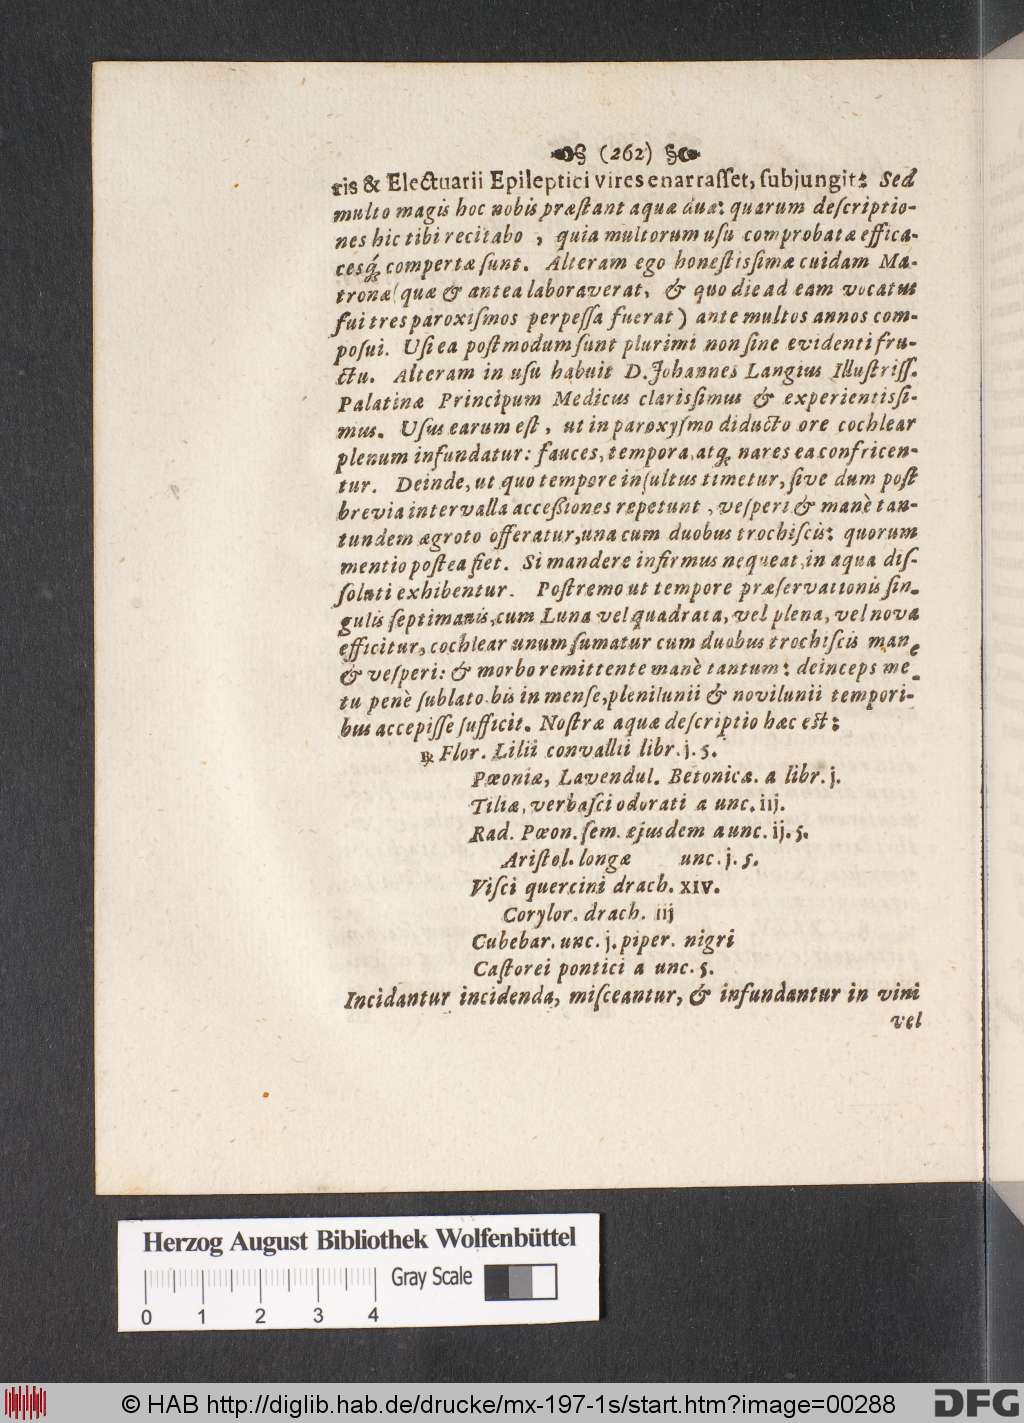 (262)
ris & Electuarii Epileptici vires enarrasset, subjungit: Sed
multo magis hoc nobis præstant aquæ duæ: quarum descriptio-
nes hic tibi recitabo , quia multorum usu comprobatæ effica-
cesq́; compertæ sunt. Alteram ego honestissimæ cuidam Ma-
tronæ (quæ & antea laboraverat, & quo die ad eam vocatus
fui tres paroxismos perpessa fuerat) ante multos annos com-
posui. Usi ea postmodum sunt plurimi non sine evidenti fru-
ctu. Alteram in usu habuit D. Johannes Langius Illustriss.
Palatinæ Principum Medicus clarissimus & experientissi-
mus. Usus earum est, ut in paroxysmo diducto ore cochlear
plenum infundatur: fauces, tempora, atq; nares ea confricen-
tur. Deinde, ut quo tempore insultus timetur, sive dum post
brevia intervalla accessiones repetunt, vesperi & manè tan-
tundem ægroto offeratur, una cum duobus trochiscis: quorum
mentio postea fiet. Si mandere infirmus nequeat, in aqua dis-
soluti exhibentur. Postremo ut tempore præservationis sin-
gulis septimanis, cum Luna vel quadrata, vel plena, vel nova
efficitur, cochlear unum sumatur cum duobus trochiscis mane
& vesperi: & morbo remittente manè tantum: deinceps me-
tu penè sublato bis in mense, plenilunii & novilunii tempori-
bus accepisse sufficit. Nostræ aquæ descriptio hæc est:
℞ Flor. Lilii convallii libr. j. s.
Pæoniæ, Lavendul. Betonicæ. a libr. j.
Tiliæ, verbasci odorati a unc. iij.
Rad. Pæon. sem. ejusdem a unc. ij. s.
Aristol. longæ unc. j. s.
Visci quercini drach. XIV.
Corylor. drach. iij
Cubebar. unc. j. piper. nigri
Castorei pontici a unc. s.
Incidantur incidenda, misceantur, & infundantur in vini
vel
Herzog August Bibliothek Wolfenbüttel
Gray Scale
0 1 2 3 4
© HAB http://diglib.hab.de/drucke/mx-197-1s/start.htm?image=00288
DFG